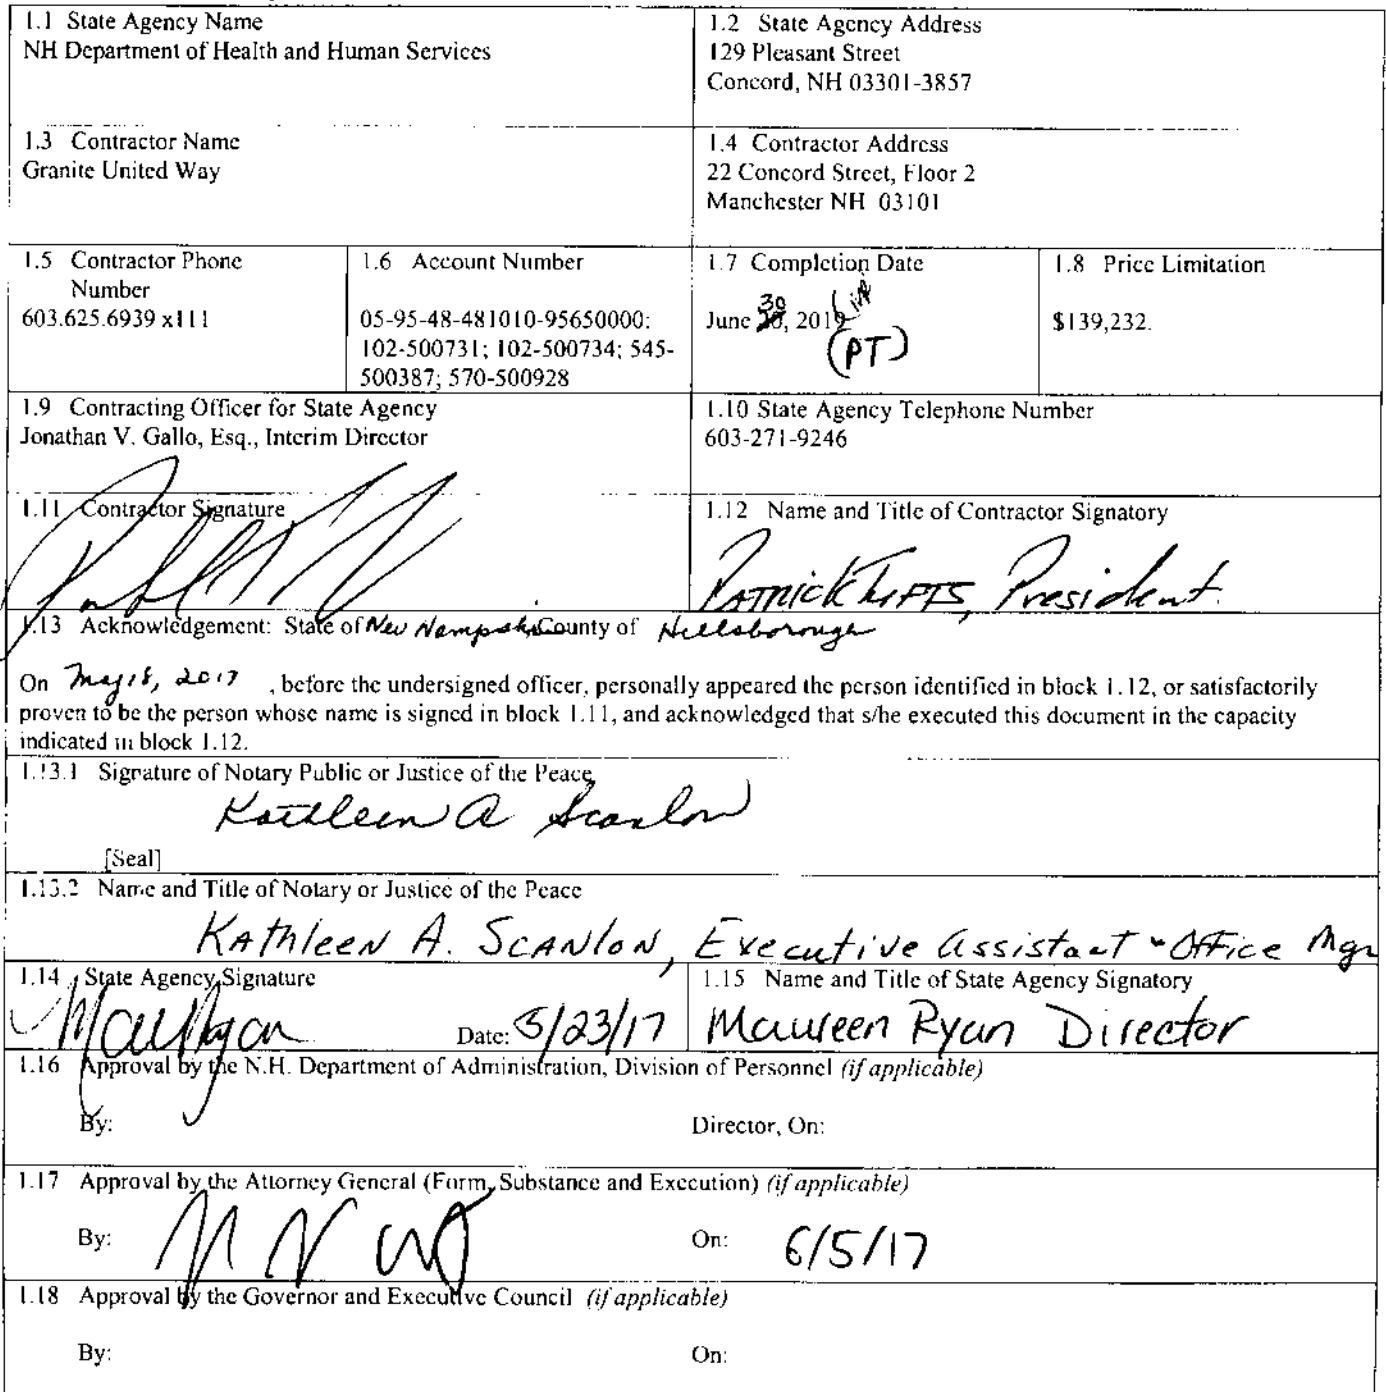 1.1 State Agency Name
NH Department of Health and Human Services
1.2 State Agency Address
129 Pleasant Street
Concord, NH 03301-3857
1.3 Contractor Name
Granite United Way
1.4 Contractor Address
22 Concord Street, Floor 2
Manchester NH 03101
1.5 Contractor Phone
Number
603.625.6939 x111
1.6 Account Number
05-95-48-481010-95650000:
102-500731; 102-500734; 545-
500387; 570-500928
1.7 Completion Date
30
June , 2019
(PT)
1.8 Price Limitation
$139,232.
1.9 Contracting Officer for State Agency
Jonathan V. Gallo, Esq., Interim Director
1.10 State Agency Telephone Number
603-271-9246
1.11 Contractor Signature
1.12 Name and Title of Contractor Signatory
PATRICK TUFTS, President
1.13 Acknowledgement: State of New Hampshire County of Hillsborough
On May 18, 2017 , before the undersigned officer, personally appeared the person identified in block 1.12, or satisfactorily
proven to be the person whose name is signed in block 1.11, and acknowledged that s/he executed this document in the capacity
indicated in block 1.12.
1.13.1 Signature of Notary Public or Justice of the Peace
Kathleen A Scanlon
[Seal]
1.13.2 Name and Title of Notary or Justice of the Peace
KAthleen A. SCANlON, Executive Assistant - Office Mgr
1.14 State Agency Signature
Date: 5/23/17
1.15 Name and Title of State Agency Signatory
Maureen Ryan Director
1.16 Approval by the N.H. Department of Administration, Division of Personnel (if applicable)
By:
Director, On:
1.17 Approval by the Attorney General (Form, Substance and Execution) (if applicable)
By:
On: 6/5/17
1.18 Approval by the Governor and Executive Council (if applicable)
By:
On: